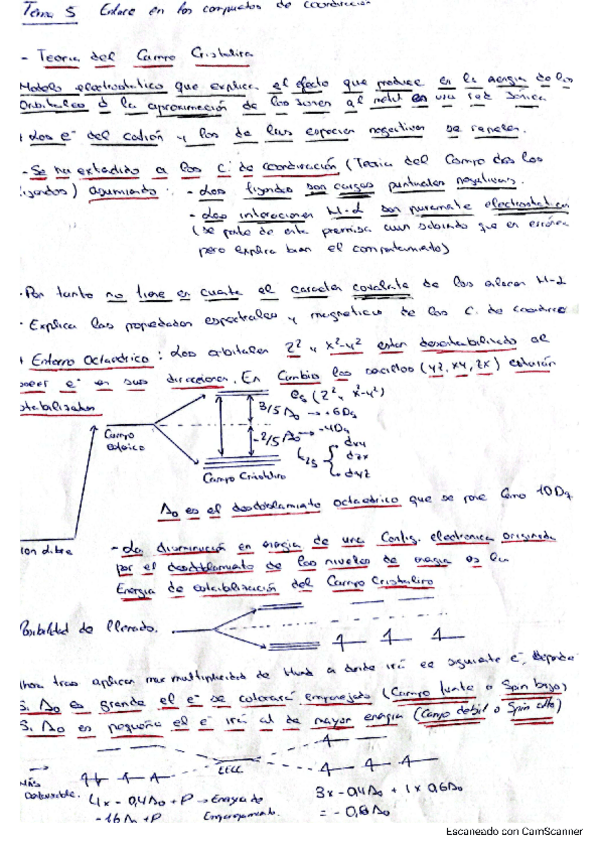 Tema 5 Enlace en los compuestos de coordinación
- Teoría del Campo Cristalino
Modelo electrostático que explica el efecto que produce en la energía de los
Orbitales d la aproximación de los iones al metal en una red iónica
Los e- del catión y los de las especies negativas se repelen.
- Se ha extendido a los C. de coordinación (Teoría del Campo de los
ligandos) asumiendo: - Los ligandos son cargas puntuales negativas.
- Las interacciones M-L son puramente electrostáticas
(se parte de esta premisa aun sabiendo que es errónea
pero explica bien el comportamiento)
· Por tanto no tiene en cuenta el carácter covalente de los enlaces M-L
· Explica las propiedades espectrales y magnéticas de los C. de coordinación
Entorno Octaédrico: Los orbitales z² y x²-y² están desestabilizados al
poseer e- en sus direcciones. En Cambio los (yz, xy, zx) estarán
estabilizados
eg (z², x²-y²)
3/5 Δo → 6Dq
-2/5 Δo → -4Dq
t2g dxy
dzx
dyz
Campo
esférico
Campo Cristalino
Ion libre
Δo es el desdoblamiento octaédrico que se pone como 10Dq
- La disminución en energía de una Config. electrónica originada
por el desdoblamiento de los niveles de energía es la
Energía de estabilización del Campo Cristalino
Posibilidad de llenado.
Ahora tras aplicar max multiplicidad de Hund a donde irá el siguiente e-, depende
Si Δo es grande el e- se colocará emparejado (Campo fuerte o Spin bajo)
Si Δo es pequeña el e- irá al de mayor energía (Campo débil o Spin alto)
EECC
Más
4x - 0,4Δo + P → Energía de
Emparejamiento.
-1,6Δo + P
3x - 0,4Δo + 1x 0,6Δo
= - 0,6Δo
Escaneado con CamScanner